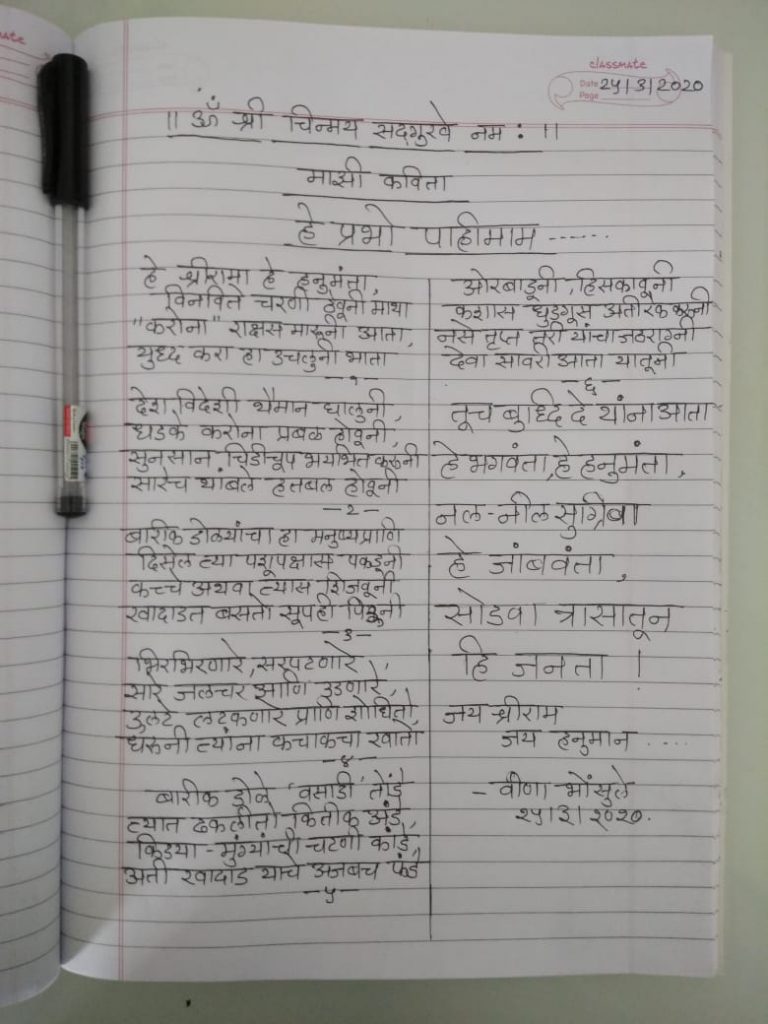 classmate
Date २५|३|२०२०
Page
|| ॐ श्री चिन्मय सद्गुरवे नमः ||
माझी कविता
हे प्रभो पाहीमाम ------
हे श्रीरामा हे हनुमंता,
विनविते चरणी ठेवूनी माथा
"करोना" राक्षस मारूनी आता,
युध्द करा हा उचलुनी भाता
-१-
देश विदेशी थैमान घालुनी,
धडके करोना प्रबळ होवूनी,
सुनसान चिडीचूप भयभित करूनी
सारेच थांबले हतबल होवूनी
-२-
बारीक डोळ्यांचा हा मनुष्यप्राणि
दिसेल त्या पशूपक्षास पकडूनी
कच्चे अथवा त्यास शिजवूनी
खादाडत बसतो सूपही पिऊनी
-३-
भिरभिरणारे, सरपटणारे,
सारे जलचर आणि उडणारे,
उलटे लटकणारे प्राणि शोधितो,
धरूनी त्यांना कचाकचा खातो
-४-
बारीक डोळे 'वसाडी' तोंडे
त्यात ढकलीतो कितीक अंडे,
किडया-मुंग्यांची चटणी कांडे,
अती खादाड याचे अजबच फंडे
-५-
ओरबाडूनी, हिसकावूनी
कशास धुडगूस अतीरेक करूनी
नसे तृप्त तूरी यांचा जठराग्नी
देवा सावरी आता यातूनी
-६-
तूच बुध्दि दे यांना आता
हे भगवंता, हे हनुमंता,
नल-नील सुग्रिवा
हे जांबवंता,
सोडवा त्रासातून
हि जनता !
जय श्रीराम
जय हनुमान ....
- वीणा भोंसुले
२५|३|२०२०.